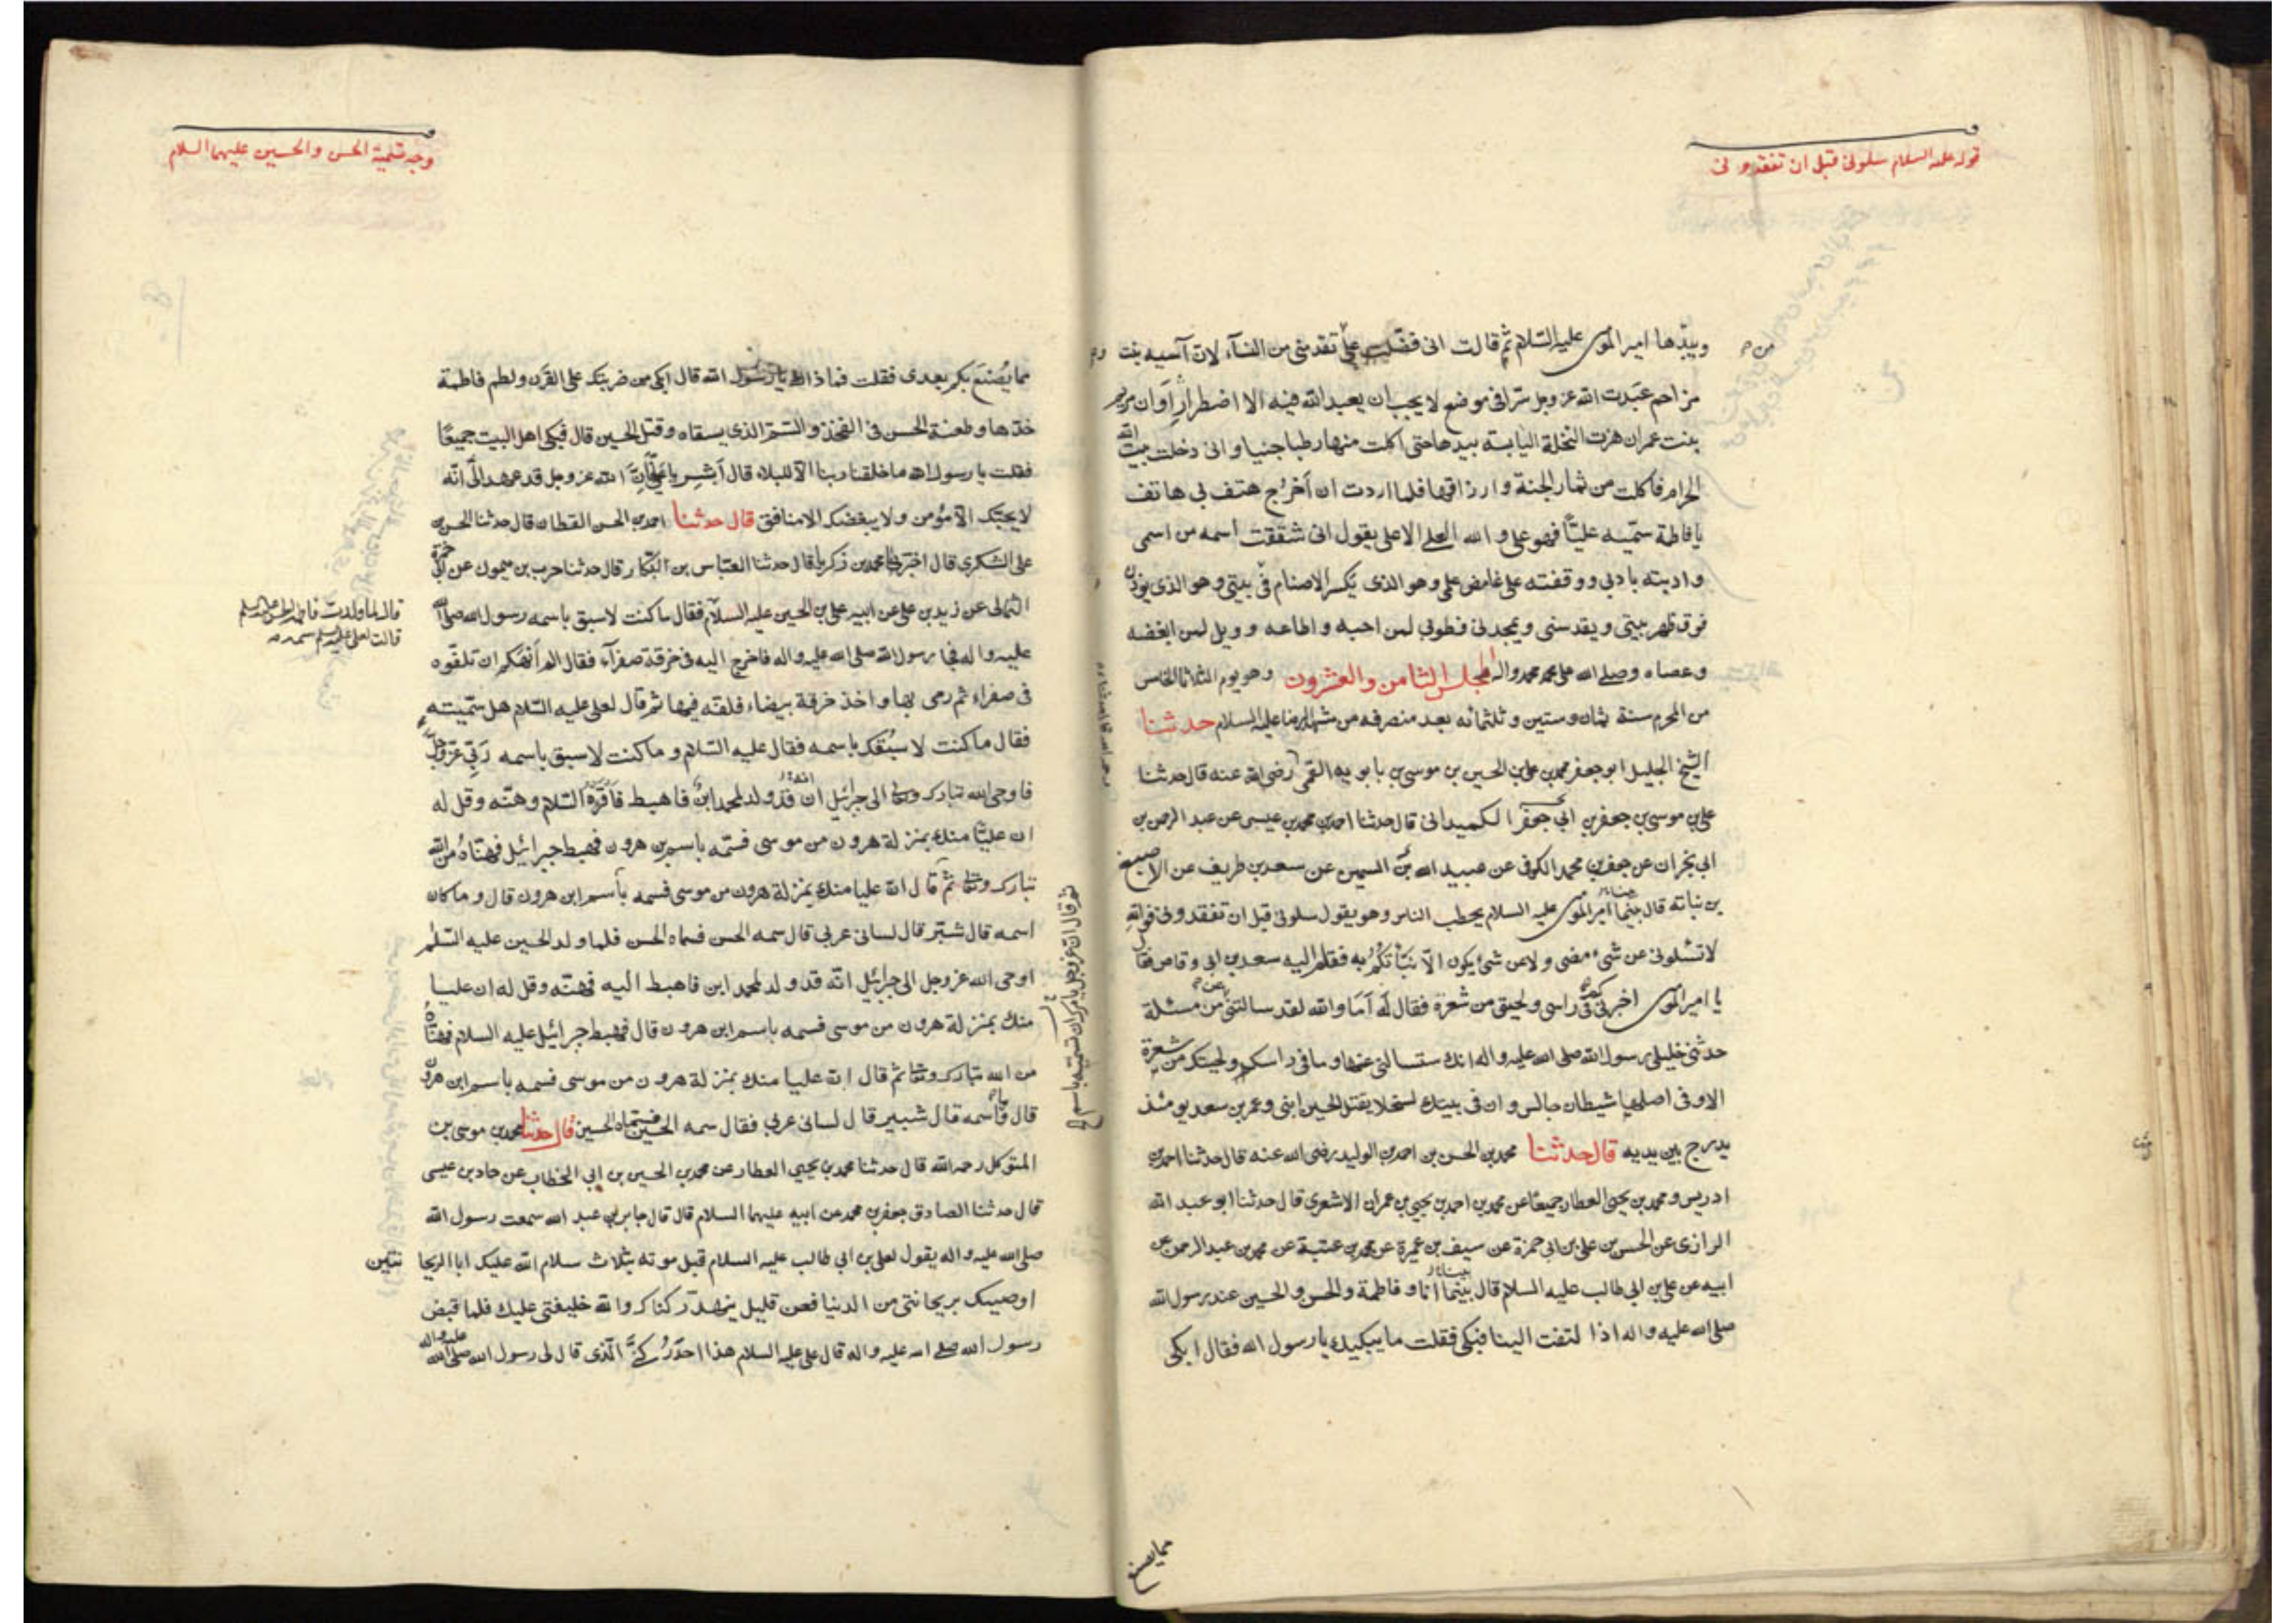 قوله عليه السلام سلونى قبل ان تفقدونى
وبيدها امير المؤمنين عليه السلام ثم قالت انى فضلت على من تقدمنى من النساء لان آسيه بنت
مزاحم عبدت الله عز وجل سرا فى موضع لا يحب ان يعبد الله فيه الا اضطرارا وان مريم
بنت عمران هزت النخلة اليابسة بيدها حتى اكلت منها رطبا جنيا وانى دخلت بيت الله
الحرام فاكلت من ثمار الجنة وارزاقها فلما اردت ان أخرج هتف بى هاتف
يا فاطمة سميه عليّا فهو على والله العلى الاعلى يقول انى شققت اسمه من اسمى
وادبته بادبى ووقفته على غامض علمى وهو الذى يكسر الاصنام فى بيتى وهو الذى يؤذن
فوق ظهر بيتى ويقدسنى ويمجدنى فطوبى لمن احبه واطاعه وويل لمن ابغضه
وعصاه وصلى الله على محمد واله المجلس الثامن والعشرون وهو يوم الثلاثا الخامس
من المحرم سنة ثمان وستين وثلثمائه بعد منصرفه من مشهد الرضا عليه السلام حدثنا
الشيخ الجليل ابو جعفر محمد بن على بن الحسين بن موسى بن بابويه القمى رضى الله عنه قال حدثنا
على بن موسى بن جعفر بن ابى جعفر الكميدانى قال حدثنا احمد بن محمد بن عيسى عن عبد الرحمن بن
ابى نجران عن جعفر بن محمد الكوفى عن عبيد الله بن السمين عن سعد بن طريف عن الاصبغ
بن نباته قال بينما امير المؤمنين عليه السلام يخطب الناس وهو يقول سلونى قبل ان تفقدونى فوالله
لا تسئلونى عن شئ مضى ولا عن شئ يكون الا نبأتكم به فقام اليه سعد بن ابى وقاص فقال
يا امير المؤمنين اخبرنى كم فى راسى ولحيتى من شعرة فقال له أما والله لقد سالتنى عن مسئلة
حدثنى خليلى رسول الله صلى الله عليه واله انك ستسالنى عنها وما فى راسك ولحيتك من شعرة
الا وفى اصلها شيطان جالس وان فى بيتك لسخلا يقتل الحسين ابنى وعمر بن سعد يومئذ
يدرج بين يديه قال حدثنا محمد بن الحسن بن احمد بن الوليد رضى الله عنه قال حدثنا احمد بن
ادريس ومحمد بن يحيى العطار جميعًا عن محمد بن احمد بن يحيى بن عمران الاشعرى قال حدثنا ابو عبد الله
الرازى عن الحسن بن على بن ابى حمزة عن سيف بن عميرة عن محمد بن عتبة عن محمد بن عبد الرحمن عن
ابيه عن على بن ابى طالب عليه السلام قال بينما انا وفاطمة والحسن والحسين عند رسول الله
صلى الله عليه واله اذا لتفت الينا فبكى فقلت ما يبكيك يا رسول الله فقال ابكى
مما يصنع
وجه تسمية الحسن والحسين عليهما السلام
مما يُصْنَع بكم بعدى فقلت فماذاك يا رسول الله قال ابكى من ضربتك على القرن ولطم فاطمة
خدها وطعنة الحسن فى الفخذ والسم الذى يسقاه وقتل الحسين قال فبكى اهل البيت جميعًا
فقلت يا رسول الله ما خلقنا ربنا الا للبلاء قال أبشر يا على فان الله عز وجل قد عهد الىّ انه
لا يحبك الا مؤمن ولا يبغضك الا منافق قال حدثنا احمد بن الحسن القطان قال حدثنا الحسن بن
على السكرى قال اخبرنا محمد بن زكريا قال حدثنا العباس بن البكار قال حدثنا حرب بن ميمون عن ابى حمزة
الثمالى عن زيد بن على عن ابيه على بن الحسين عليه السلام فقال ما كنت لاسبق باسمه رسول الله صلى الله
قال لما ولدت فاطمه الحسن عليه السلم
قالت لعلى عليه السلم سمه
عليه واله فجا رسول الله صلى الله عليه واله فاخرج اليه فى خرقة صفرآء فقال الم أنهكم ان تلفّوه
فى صفراء ثم رمى بها واخذ خرقة بيضاء فلفه فيها ثم قال لعلى عليه السلام هل سميته
فقال ما كنت لاسبقك باسمه فقال عليه السلام وما كنت لاسبق باسمه ربى عز وجل
فاوحى الله تبارك وتعالى الى جبرائيل انه قد ولد لمحمد ابن فاهبط فأقرئه السلام وهنّه وقل له
ان عليّا منك بمنزلة هرون من موسى فسمّه باسم بن هرون فهبط جبرائيل فهناه من الله
تبارك وتعالى ثم قال ان عليا منك بمنزلة هرون من موسى فسمه باسم ابن هرون قال وما كان
ثم قال ان الله عز وجل يأمرك ان تسميه باسم
اسمه قال شبّر قال لسانى عربى قال سمه الحسن فسماه الحسن فلما ولد الحسين عليه السلم
اوحى الله عز وجل الى جبرائيل انه قد ولد لمحمد ابن فاهبط اليه فهنّه وقل له ان عليا
منك بمنزلة هرون من موسى فسمه باسم ابن هرون قال فهبط جبرائيل عليه السلام فهناه
من الله تبارك وتعالى ثم قال ان عليا منك بمنزلة هرون من موسى فسمه باسم ابن هرون
قال فما اسمه قال شبير قال لسانى عربى فقال سمه الحسين فسماه الحسين قال حدثنا محمد بن موسى بن
المتوكل رحمه الله قال حدثنا محمد بن يحيى العطار عن محمد بن الحسين بن ابى الخطاب عن حماد بن عيسى
قال حدثنا الصادق جعفر بن محمد عن ابيه عليهما السلام قال قال جابر بن عبد الله سمعت رسول الله
صلى الله عليه واله يقول لعلى بن ابى طالب عليه السلام قبل موته بثلاث سلام الله عليك ابا الريحا نتين
اوصيك بريحانتى من الدنيا فعن قليل ينهد ركناك والله خليفتى عليك فلما قبض
رسول الله صلى الله عليه واله قال على عليه السلام هذا احد ركنىّ الذى قال لى رسول الله صلى الله عليه واله